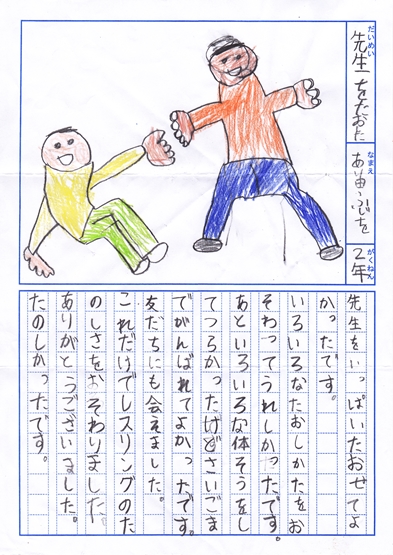 だいめい
先生をたおた
なまえ
がくねん
2年
先生をいっぱいたおせてよ
かったです。
いろいろなたおしかたをお
そわってうれしかったです。
あといろいろな体そうをし
てつらかったけどさいごま
でがんばれてよかったです。
友だちにも会えました。
これだけでレスリングのた
のしさをおそわりました。
ありがとうございました。
たのしかったです。